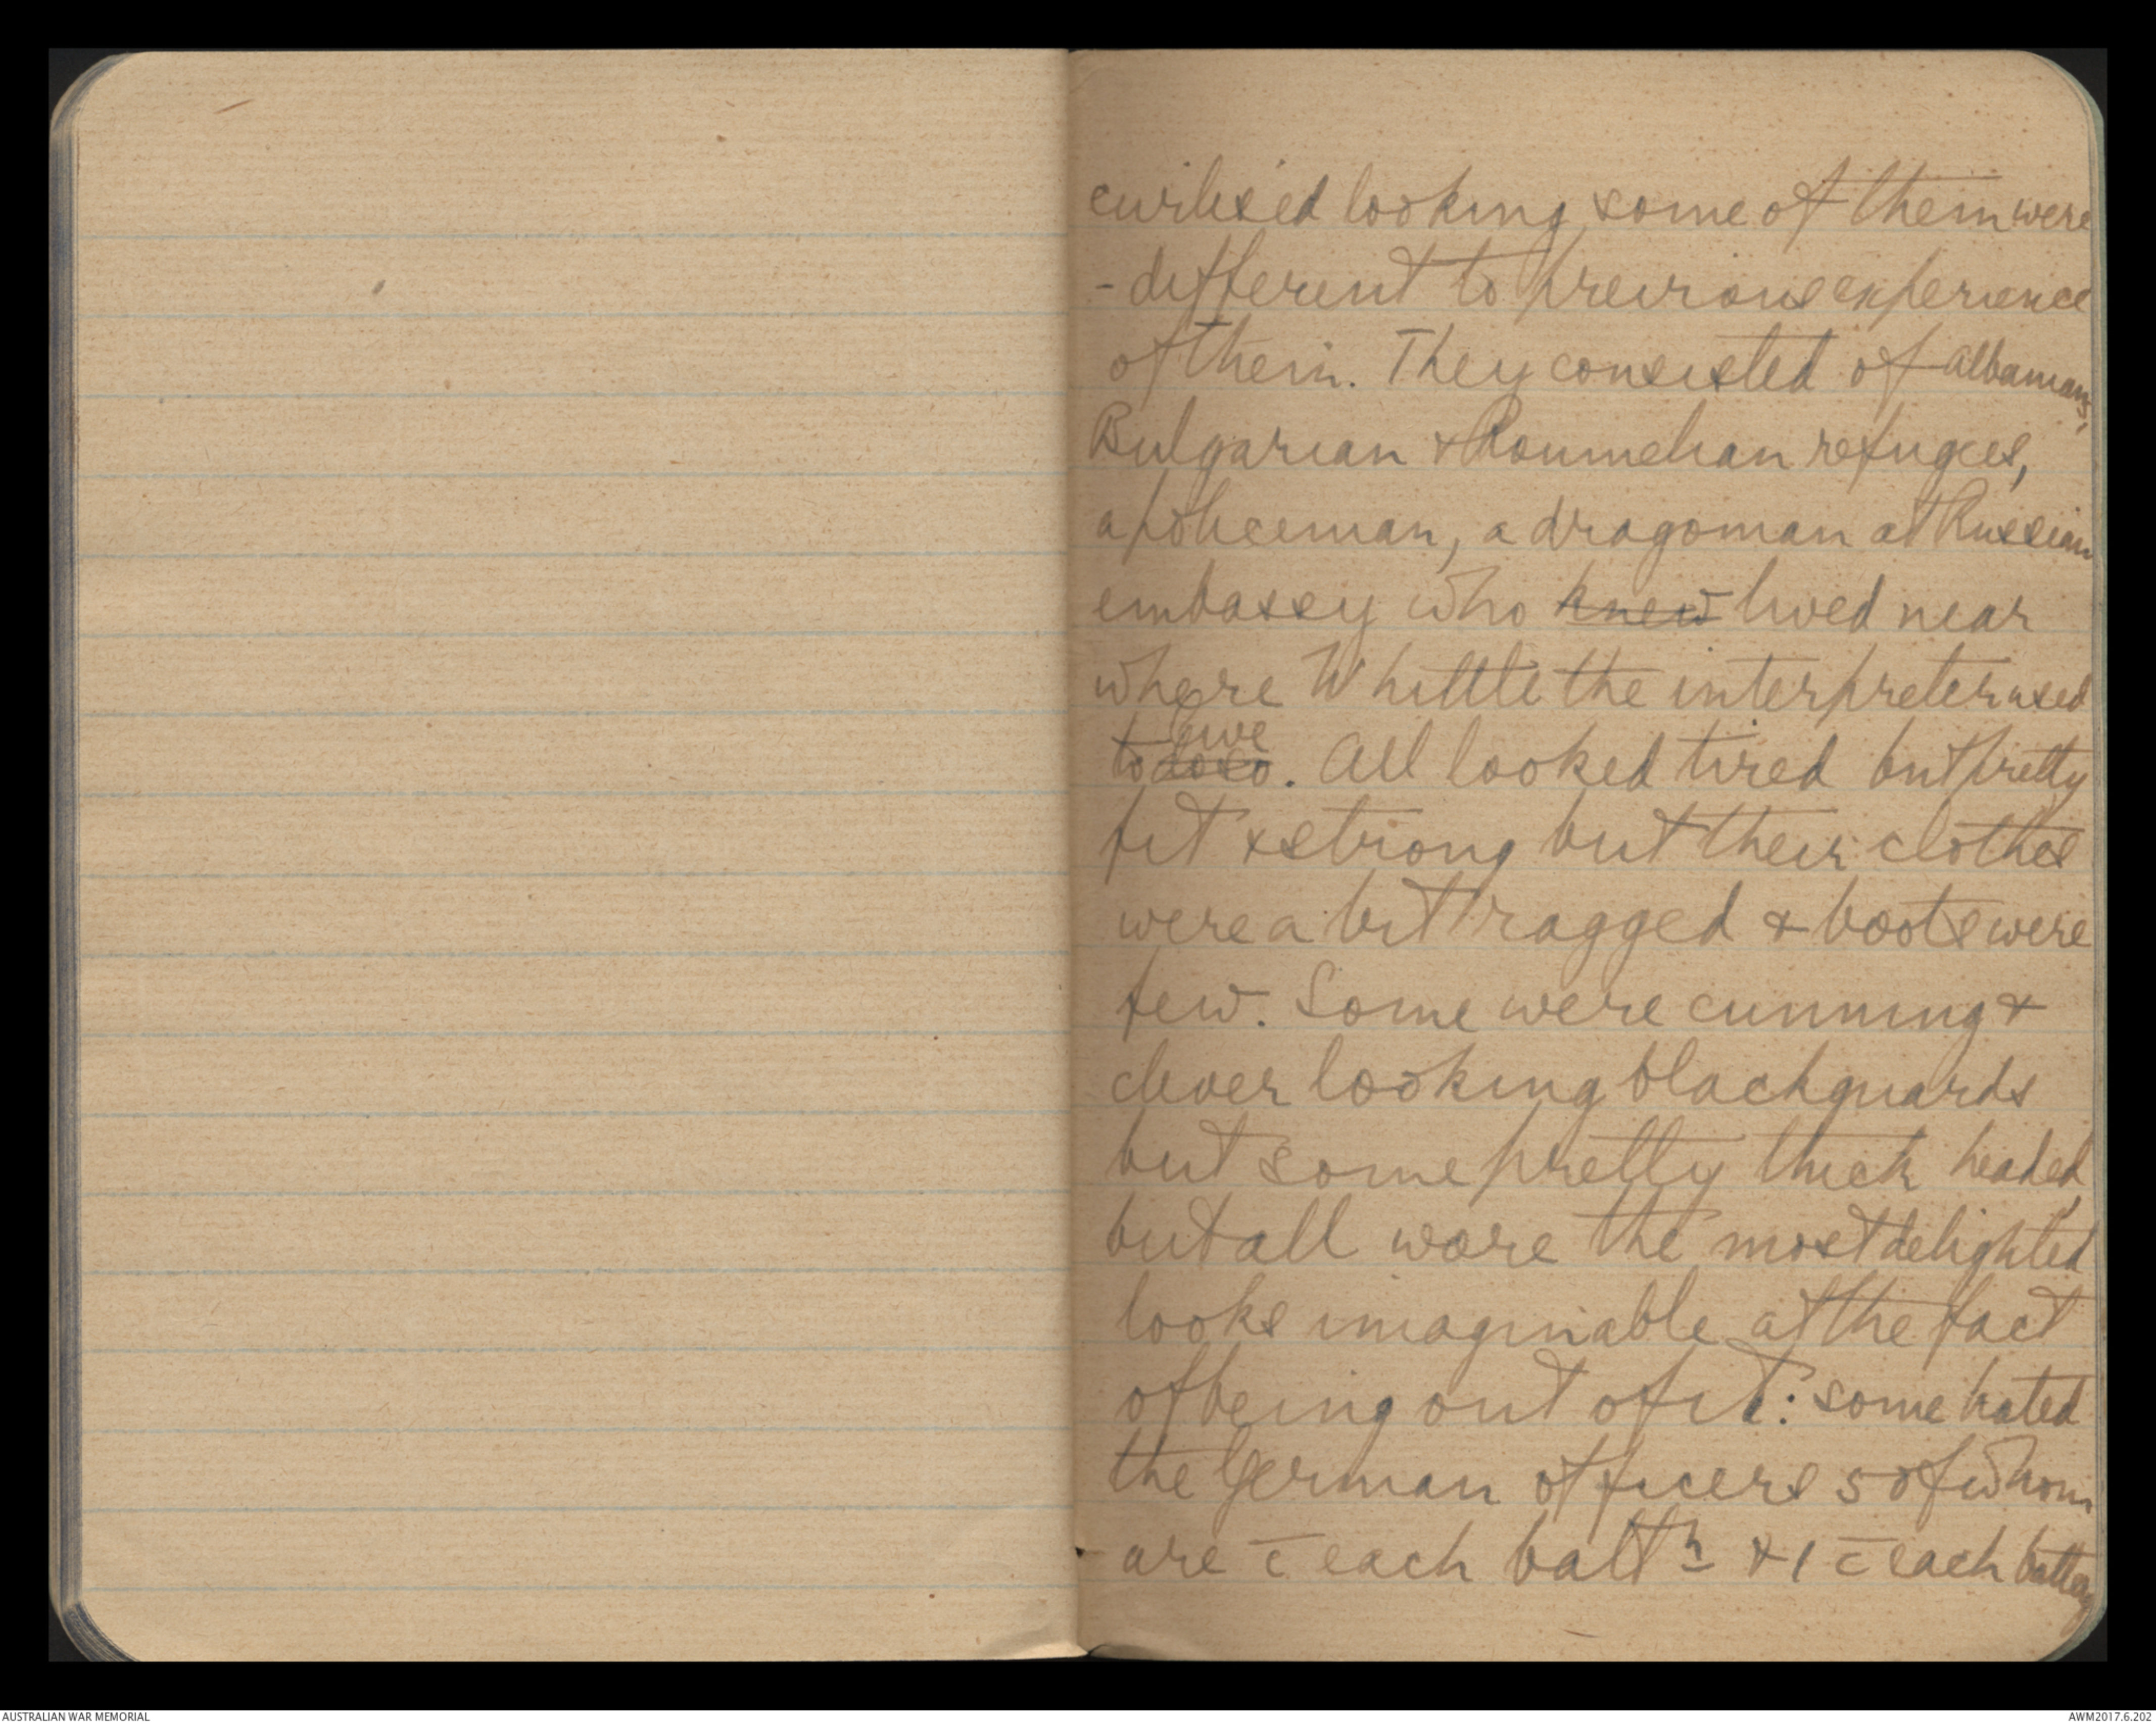 civilised looking some of them were
- different to previous experience
of them. They consisted of Albanians,
Bulgarian & Roumelian refugees,
a policeman, a dragoman at Russian
embassy who knew lived near
where Whittle the interpreter used
live
to do so. All looked tired but pretty
fit & strong but their clothes
were a bit ragged & boots were
few. Some were cunning &
clever looking blackguards
but some pretty thick headed,
but all wore the most delighted
looks imaginable at the fact
of being out of it: some hated
the German officers 5 of whom
are c̄ each battn & 1 c̄ each battery
AUSTRALIAN WAR MEMORIAL
AWM2017.6.202